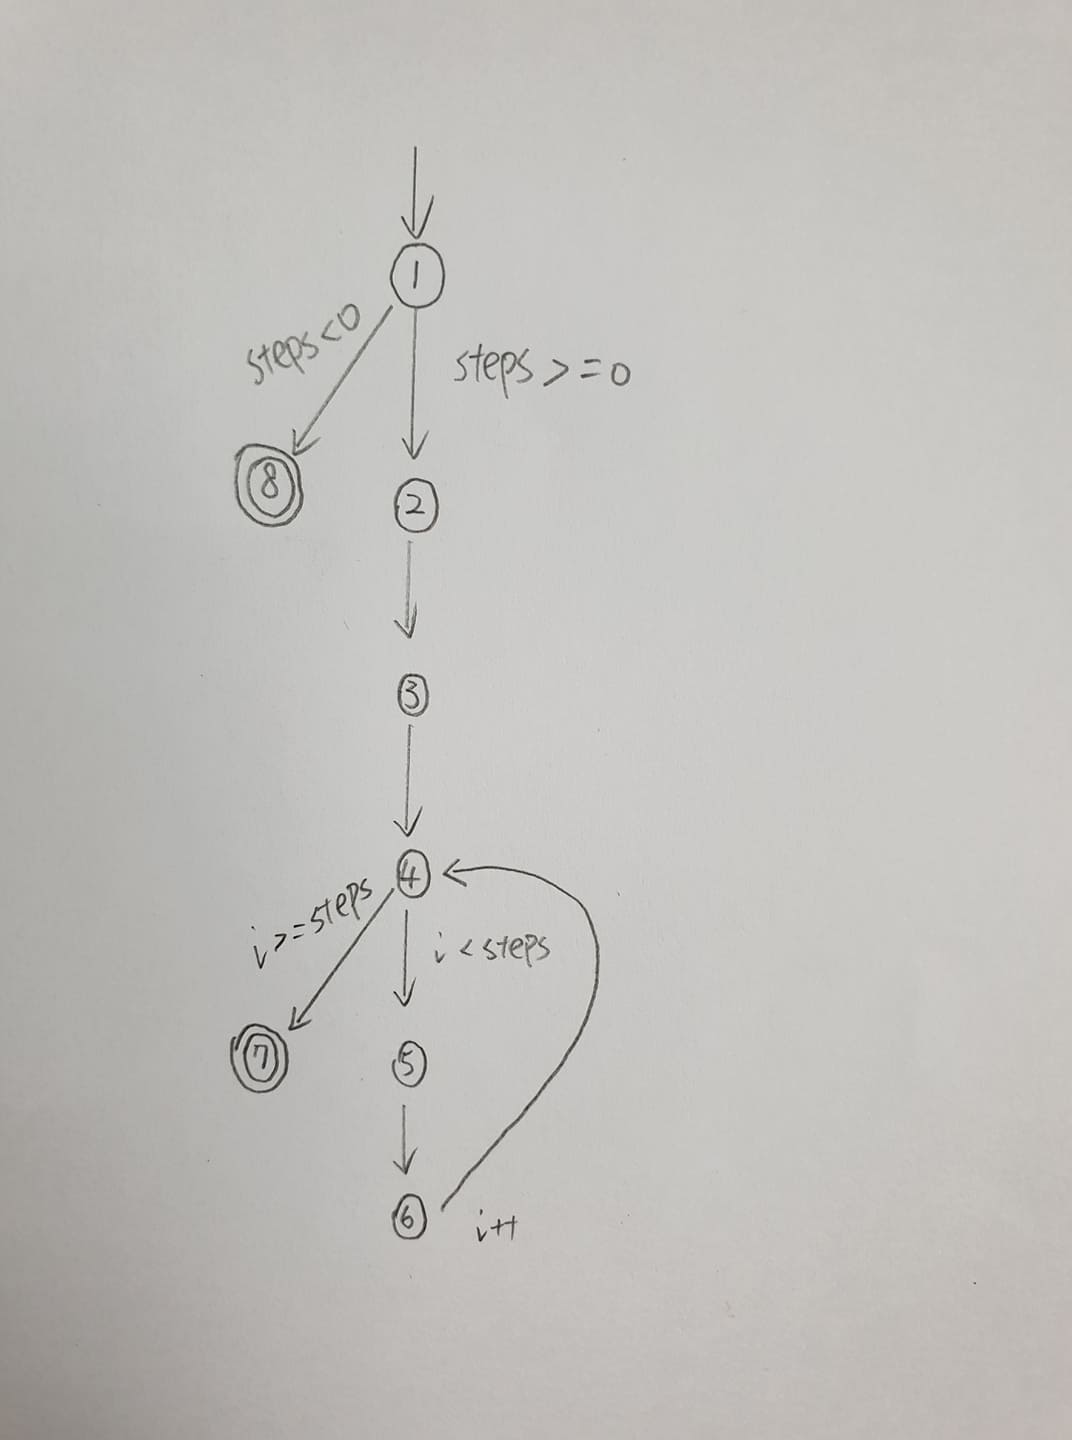 1
steps<0
steps>=0
8
2
3
4
i>=steps
i<steps
7
5
6
i++